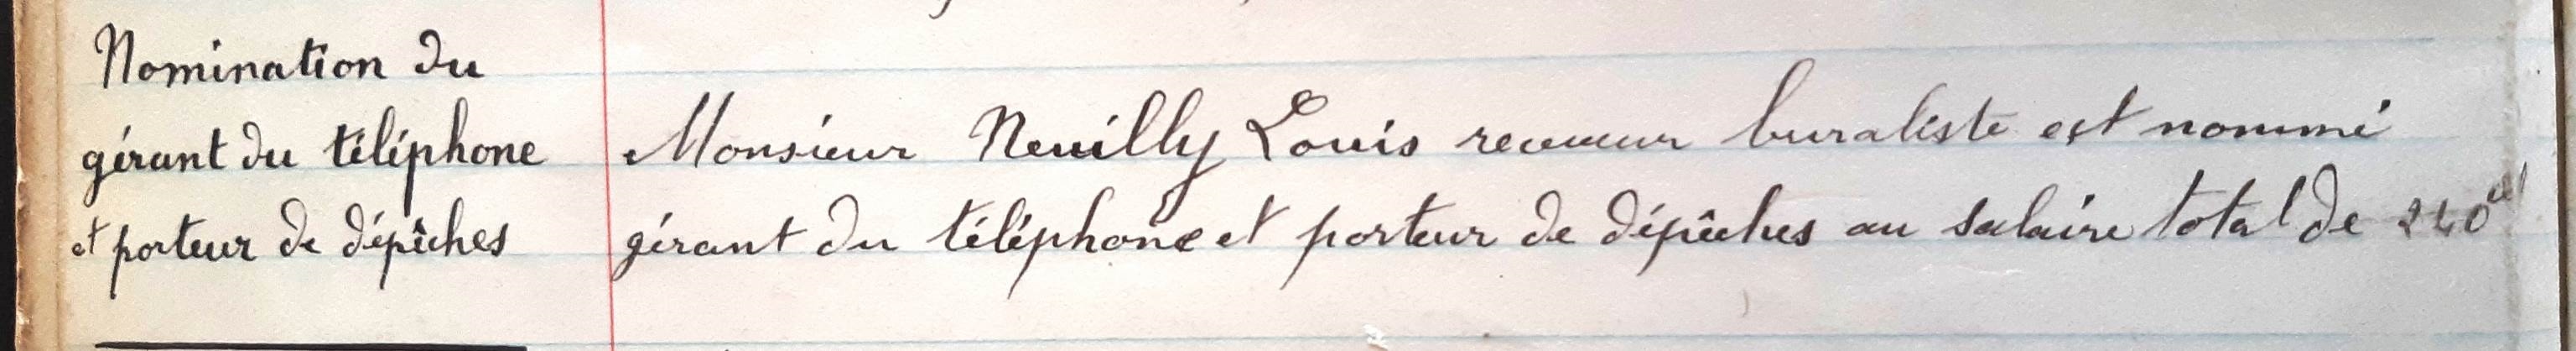 Nomination du
gérant du téléphone
et porteur de dépêches
Monsieur Neuilly Louis receveur buraliste est nommé
gérant du téléphone et porteur de dépêches au salaire total de 240